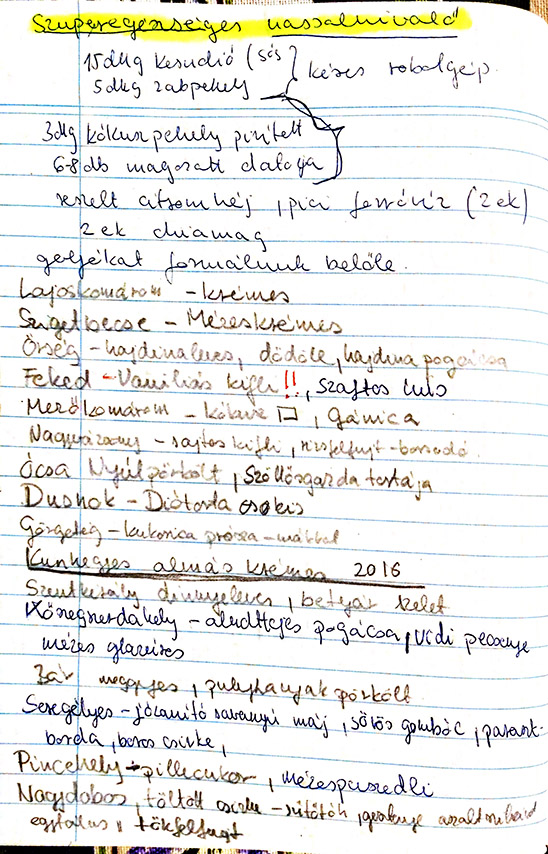 Szuperegészséges nassalnivaló
15dkg kesudió (sós
5dkg zabpehely } késes robotgép
3dkg kókuszpehely pirított
6-8 db magozott datolya
reszelt citromhéj, pici forró víz (2 ek)
2 ek chiamag
golyókat formálunk belőle.
Lajoskomárom - krémes
Szigetbecse - Mézeskrémes
Őrség - hajdinaleves, dödölle, hajdina pogácsa
Feked - Vaníliás kifli !!, szaftos hús
Mezőkomárom - kóláve, gánica
Nagyvázsony - sajtos kifli, rizsfelfújt - borsodó
Ócsa Nyúlpörkölt, Szöllősgazda tortája
Dusnok - Diótorta csokis
Görgeteg - kukorica prósza - mákkal
Kunhegyes almás krémes 2016
Szentkirály dinnyeleves, betyár szelet
Kőszegszerdahely - aludttejes pogácsa, Vidi pecsenye
mézes glazúros
meggyes, pulykanyak pörkölt
Seregélyes - józanító savanyú máj, sörös gombóc, paraszt-
borda, boros csirke,
Pincehely - pillecukor, mézespuszedli
Nagydobos, töltött csirke - sütőtök, gesztenye aszaltszilvával
egytálas, tökfelfújt